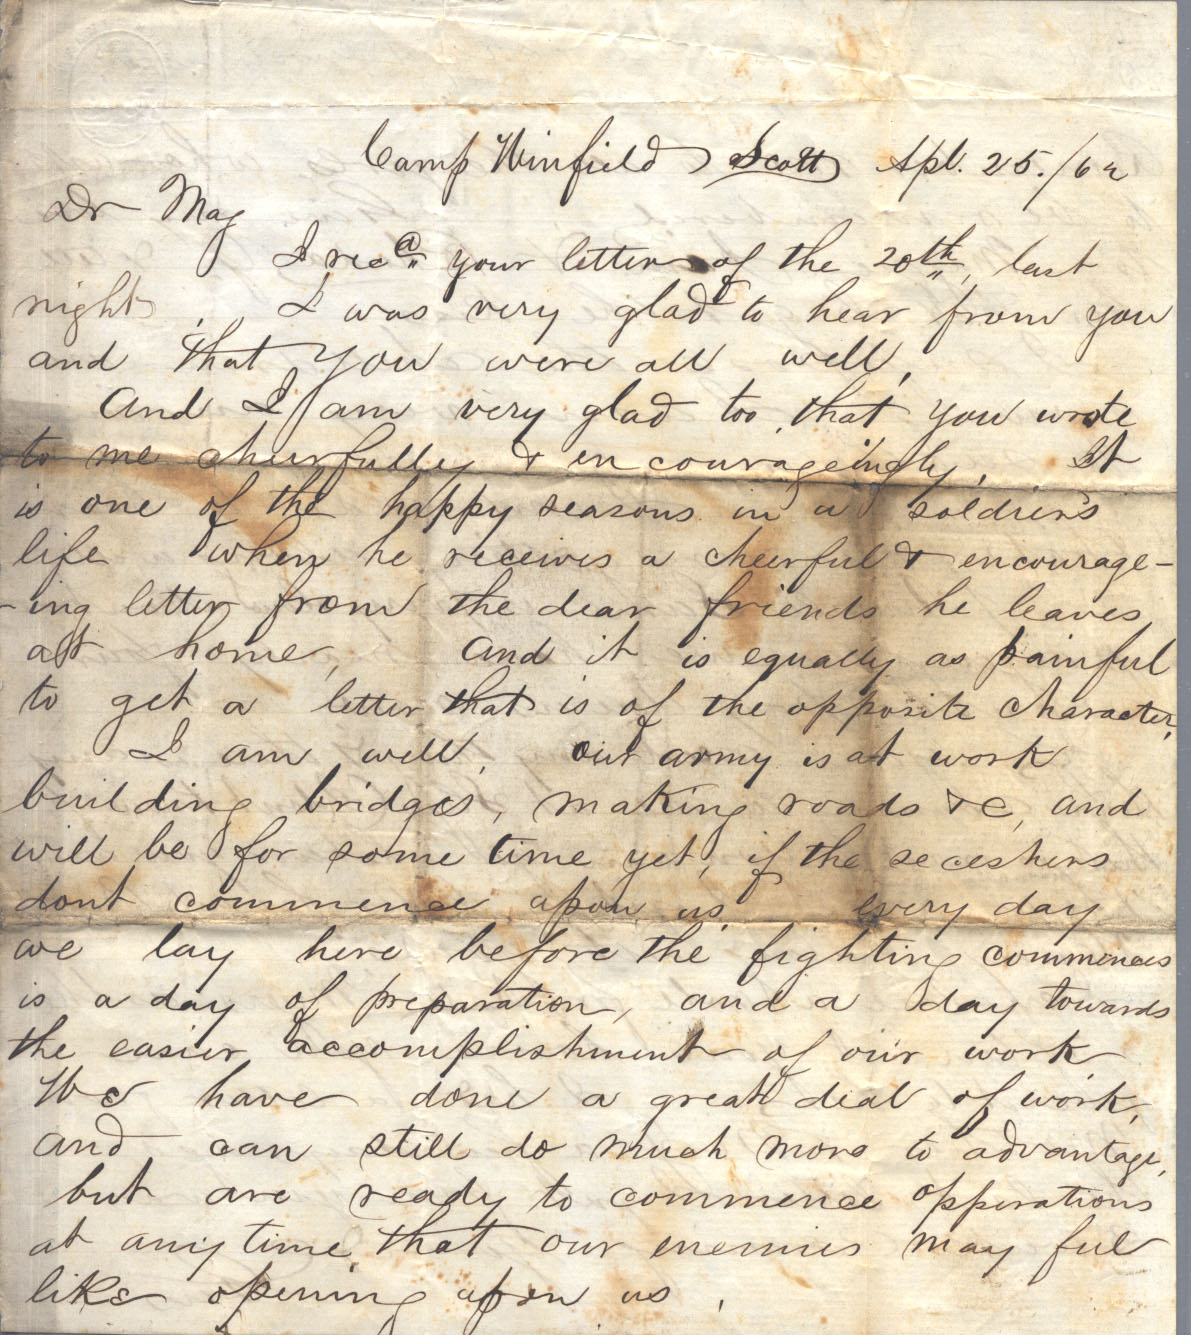 Camp Winfield Scott Apl. 25./62
Dr Mag
I recd your letter of the 20th, last
night. I was very glad to hear from you
and that you were all well,
And I am very glad too, that you wrote
to me cheerfully & encourageingly, It
is one of the happy seasons in a soldier's
life when he receives a cheerful & encourage-
-ing letter from the dear friends he leaves
at home, And it is equally as painful
to get a letter that is of the opposite character,
I am well, our army is at work
building bridges, making roads &c, and
will be for some time yet, if the seceshers
dont commence upon us, every day
we lay here before the fighting commences
is a day of preparation, and a day towards
the easier accomplishment of our work,
We have done a great deal of work,
and can still do much more to advantage,
but are ready to commence opperations
at any time that our enemies may feel
like opening upon us,